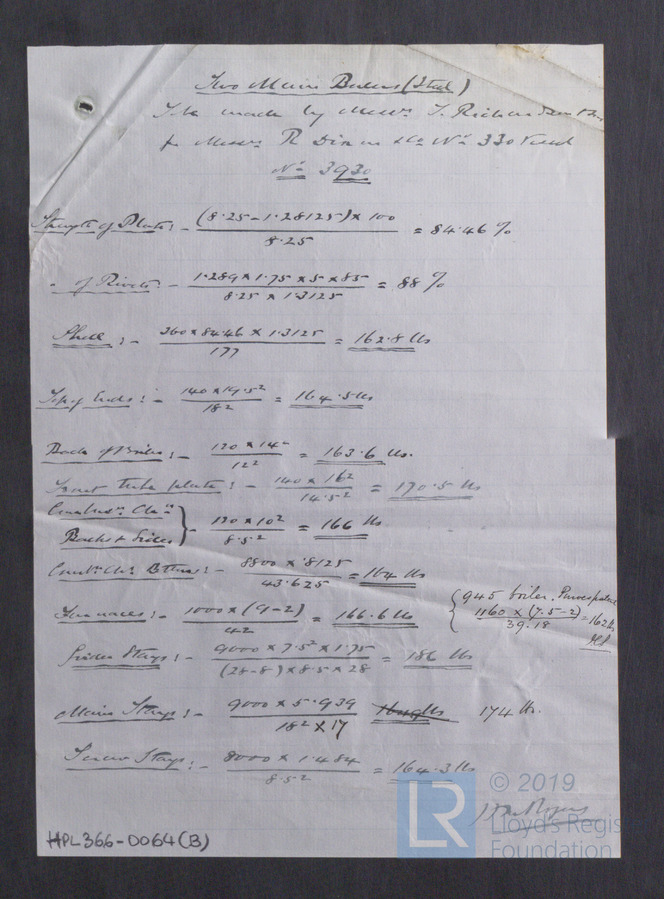 Two Main Boilers (Steel)
To be made by Messrs T. Richardson &
for Messrs R Dixon & Co No 330 Vessel
No 3930
Strength of Plate:- (8.25-1.28125) x 100 / 8.25 = 84.46 %
" of Rivets:- 1.289 x 1.75 x 5 x 85 / 8.25 x 1.3125 = 88 %
Shell:- 260 x 84.46 x 1.3125 / 177 = 162.8 lbs
Top of Ends:- 140 x 19.5² / 18² = 164.5 lbs
Back of Boiler:- 120 x 14² / 12² = 163.6 lbs.
Front tube plate:- 140 x 16² / 14.5² = 170.5 lbs
Combusn. Chrs
Backs & Sides } - 120 x 10² / 8.5² = 166 lbs
Combn. Chr. Bottom:- 8800 x .8125 / 43.625 = 164 lbs
Furnaces:- 1000 x (9-2) / 42 = 166.6 lbs
{ 945 boiler. Purves patent
1160 x (7.5-2) / 39.18 = 162 lbs
Girder Stays:- 9000 x 7.5² x 1.75 / (28-8) x 8.5 x 28 = 186 lbs
Main Stays:- 9000 x 5.939 / 18² x 17 174 lbs.
Screw Stays:- 8000 x 1.484 / 8.5² = 164.3 lbs
HPL366-0064(B)
LR
© 2019
Lloyd's Register
Foundation